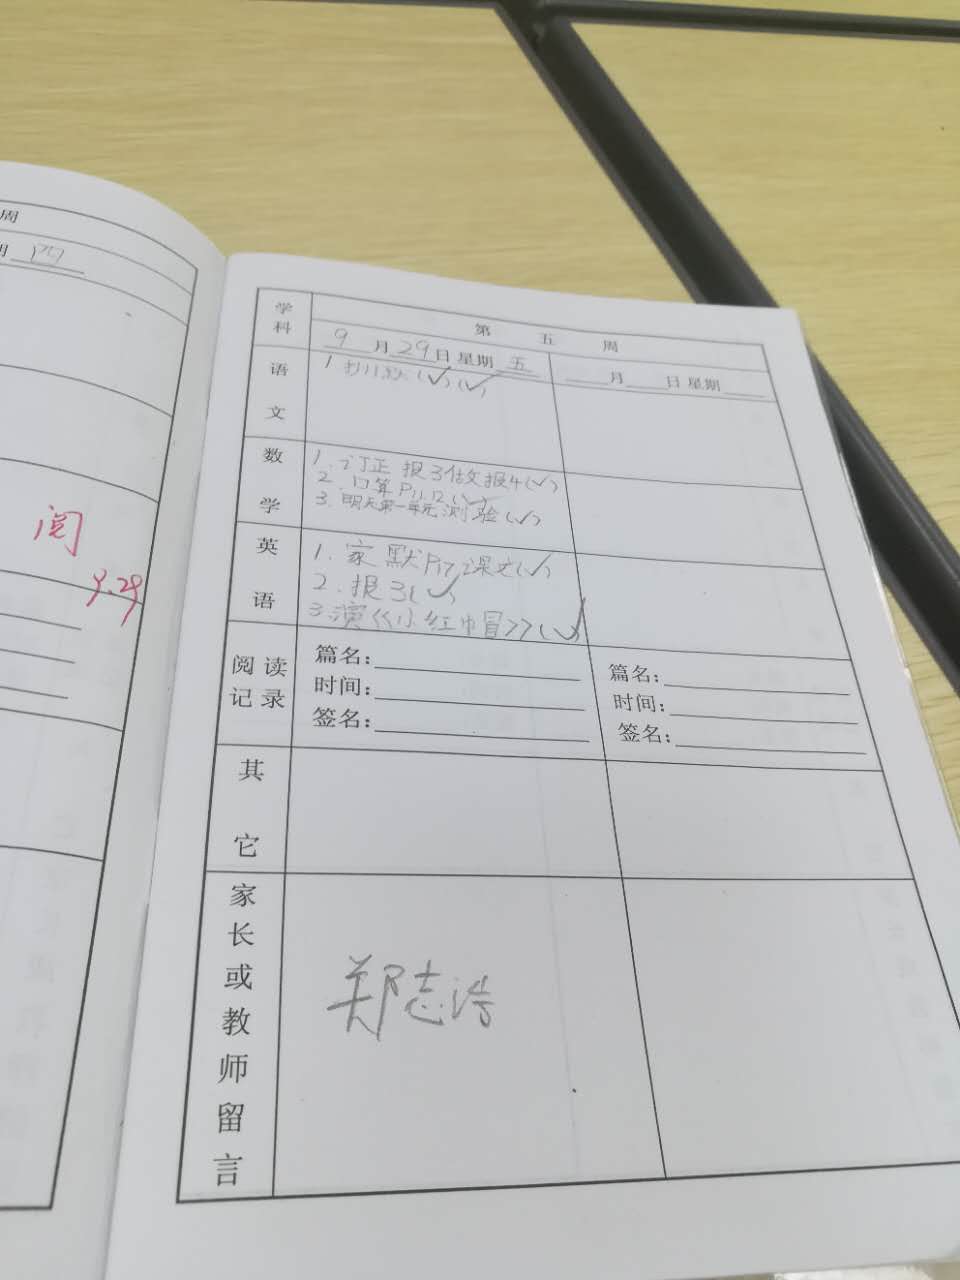 周
期 四
阅
9.29
学科
第 五 周
9 月 29 日 星期 五
月 日 星期
语文
1.
数学
1.订正报3做报4(✓)
2.口算P11,12(✓)
3.明天第一单元测验(✓)
英语
1.家默P17课文(✓)
2.报3(✓)
3.演《小红巾冒》(✓)
阅读记录
篇名:
时间:
签名:
篇名:
时间:
签名:
其它
家长或教师留言
郑志浩